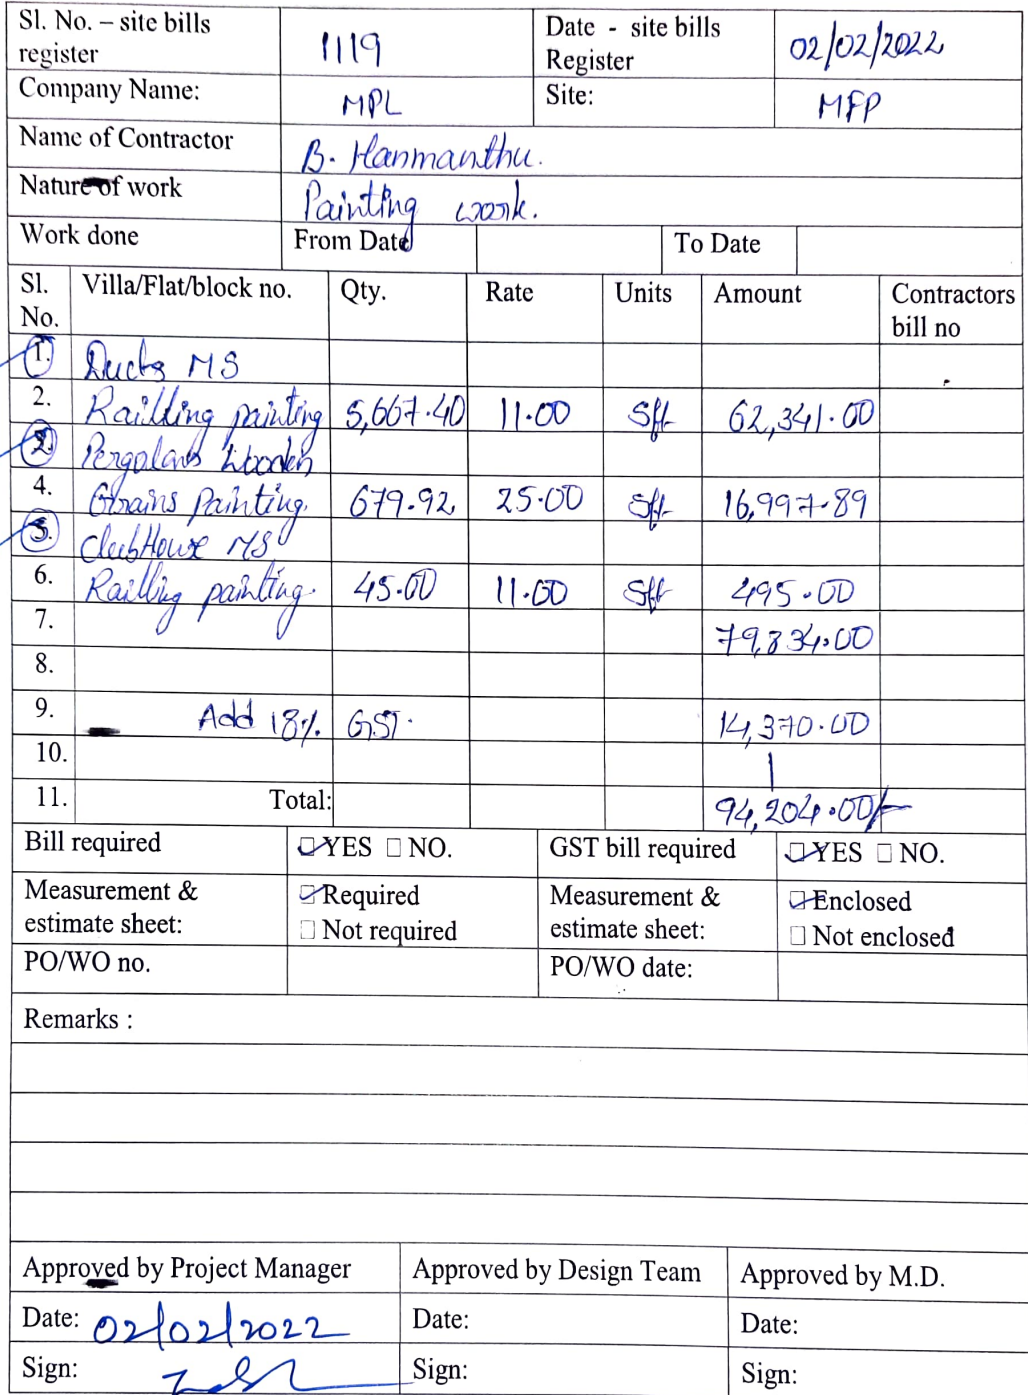 Sl. No. – site bills register 1119 Date - site bills Register 02/02/2022
Company Name: MPL Site: MFP
Name of Contractor B. Hanmanthu.
Nature of work Painting work.
Work done From Date To Date
Sl. No. Villa/Flat/block no. Qty. Rate Units Amount Contractors bill no
1. Ducts MS
2. Railling painting 5,667.40 11.00 Sft 62,341.00
2. Pergolans Wooden
4. Grains Painting. 679.92 25.00 Sft 16,997.89
3. ClubHouse MS
6. Railling painting. 45.00 11.00 Sft 495.00
7. 79,834.00
8.
9. Add 18% GST. 14,370.00
10.
11. Total: 94,204.00/-
Bill required YES NO. GST bill required YES NO.
Measurement & estimate sheet: Required Not required Measurement & estimate sheet: Enclosed Not enclosed
PO/WO no. PO/WO date:
Remarks :
Approved by Project Manager Approved by Design Team Approved by M.D.
Date: 02/02/2022 Date: Date:
Sign: Sign: Sign: